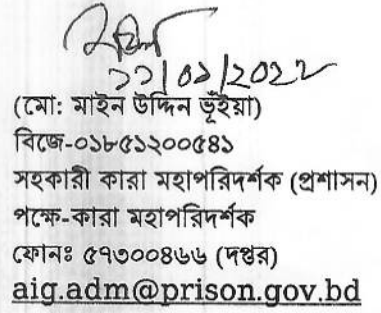 ১১/০১/2022
(মো: মাইন উদ্দিন ভূঁইয়া)
বিজে-০১৮৫১২০০৫৪১
সহকারী কারা মহাপরিদর্শক (প্রশাসন)
পক্ষে-কারা মহাপরিদর্শক
ফোনঃ ৫৭৩০০৪৬৬ (দপ্তর)
aig.adm@prison.gov.bd